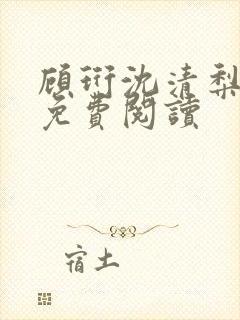 顾衍沈清梨
免費閱讀
宿土